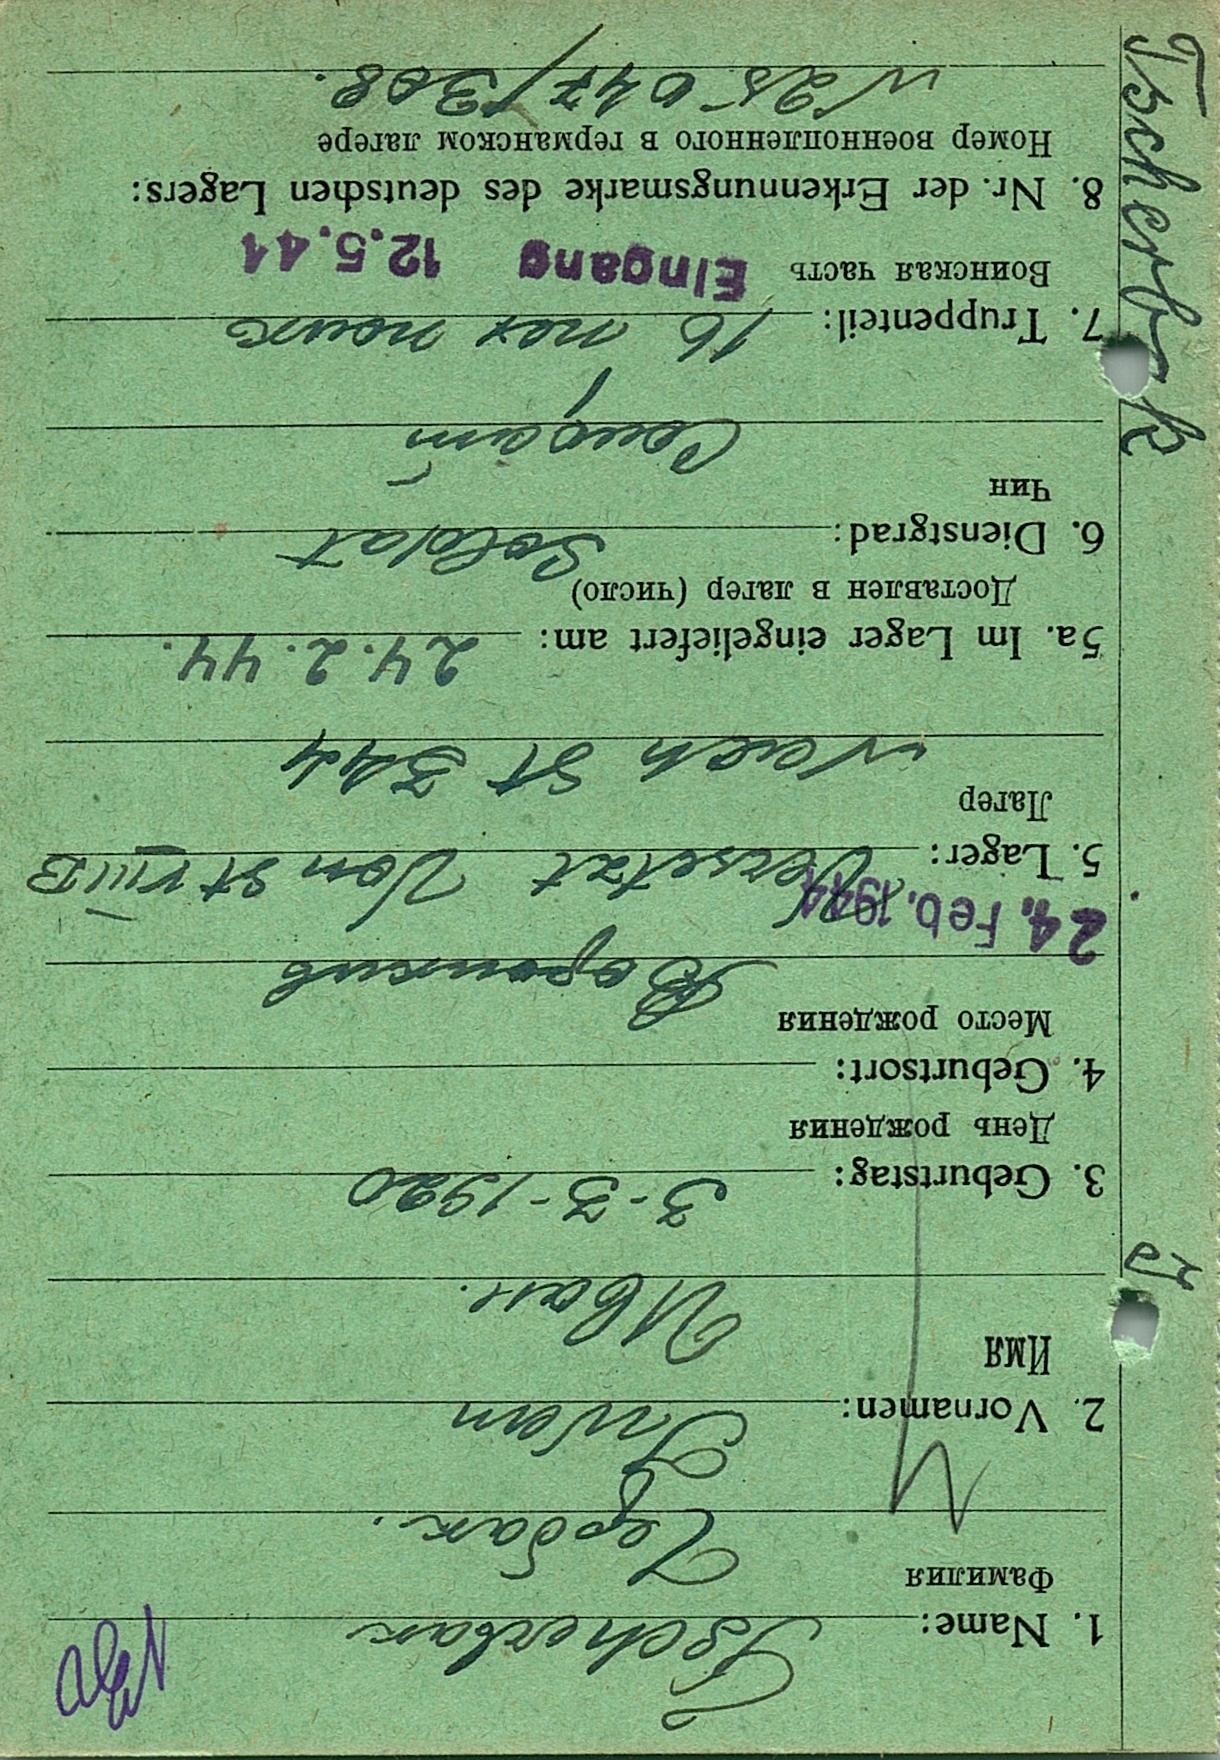 1. Name: Tscherbak
Фамилия
Чербак.
2. Vornamen: Iwan
Имя
Иван.
3. Geburtstag: 3-3-1920
День рождения
4. Geburtsort:
Место рождения
24. Feb. 1944
5. Lager: Versetzt Von St VIII B
Лагер
Nach St 344
5a. Im Lager eingeliefert am: 24.2.44.
Доставлен в лагер (число)
6. Dienstgrad: Soldat
Чин
Солдат
7. Truppenteil: 16
Воинская часть Eingang 12.5.44
8. Nr. der Erkennungsmarke des deutschen Lagers:
Номер военнопленного в германском лагере
N 25047/308.
Tscherbak
J